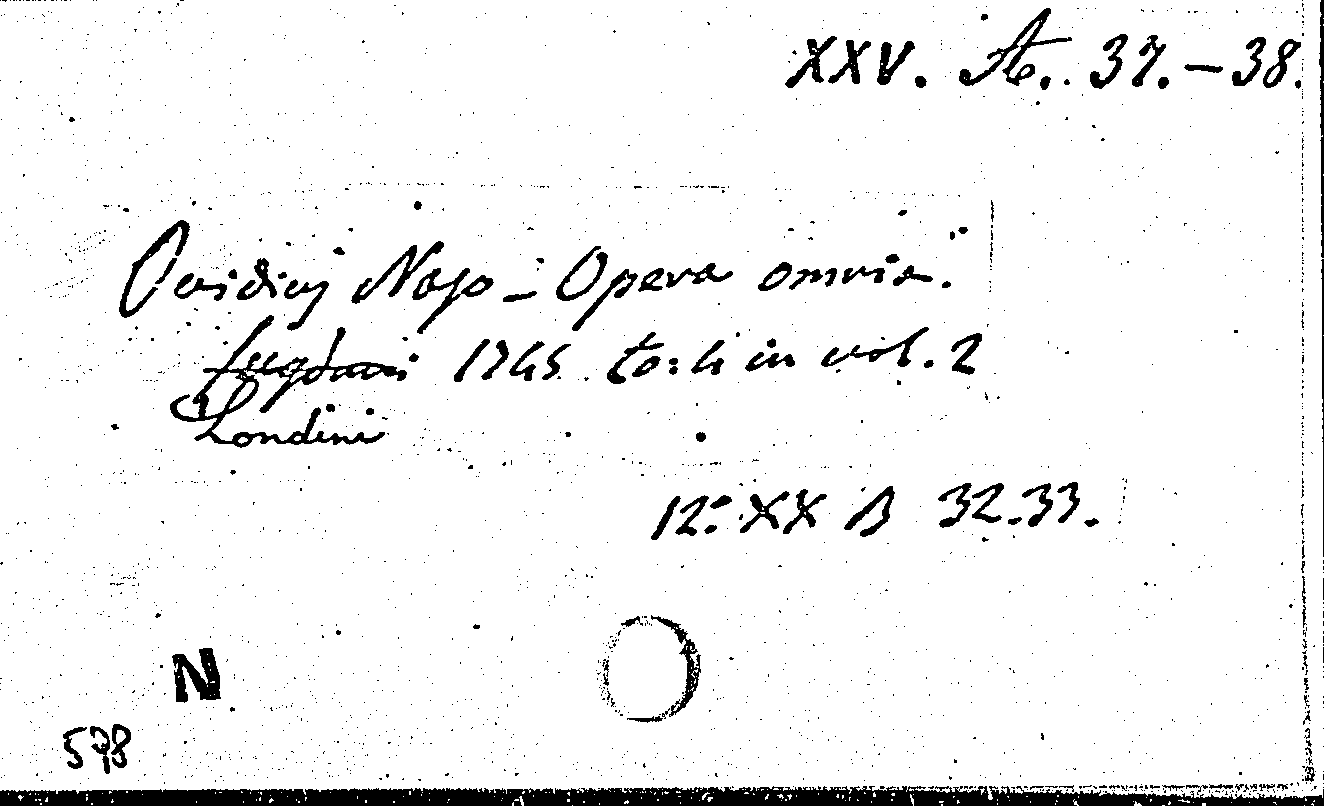 XXV. A. 37. – 38.
Ovidius Naso – Opera omnia.
Lugduni 1745 to: 4 in vol. 2
Londini
12.° XX B 32.33.
N
578